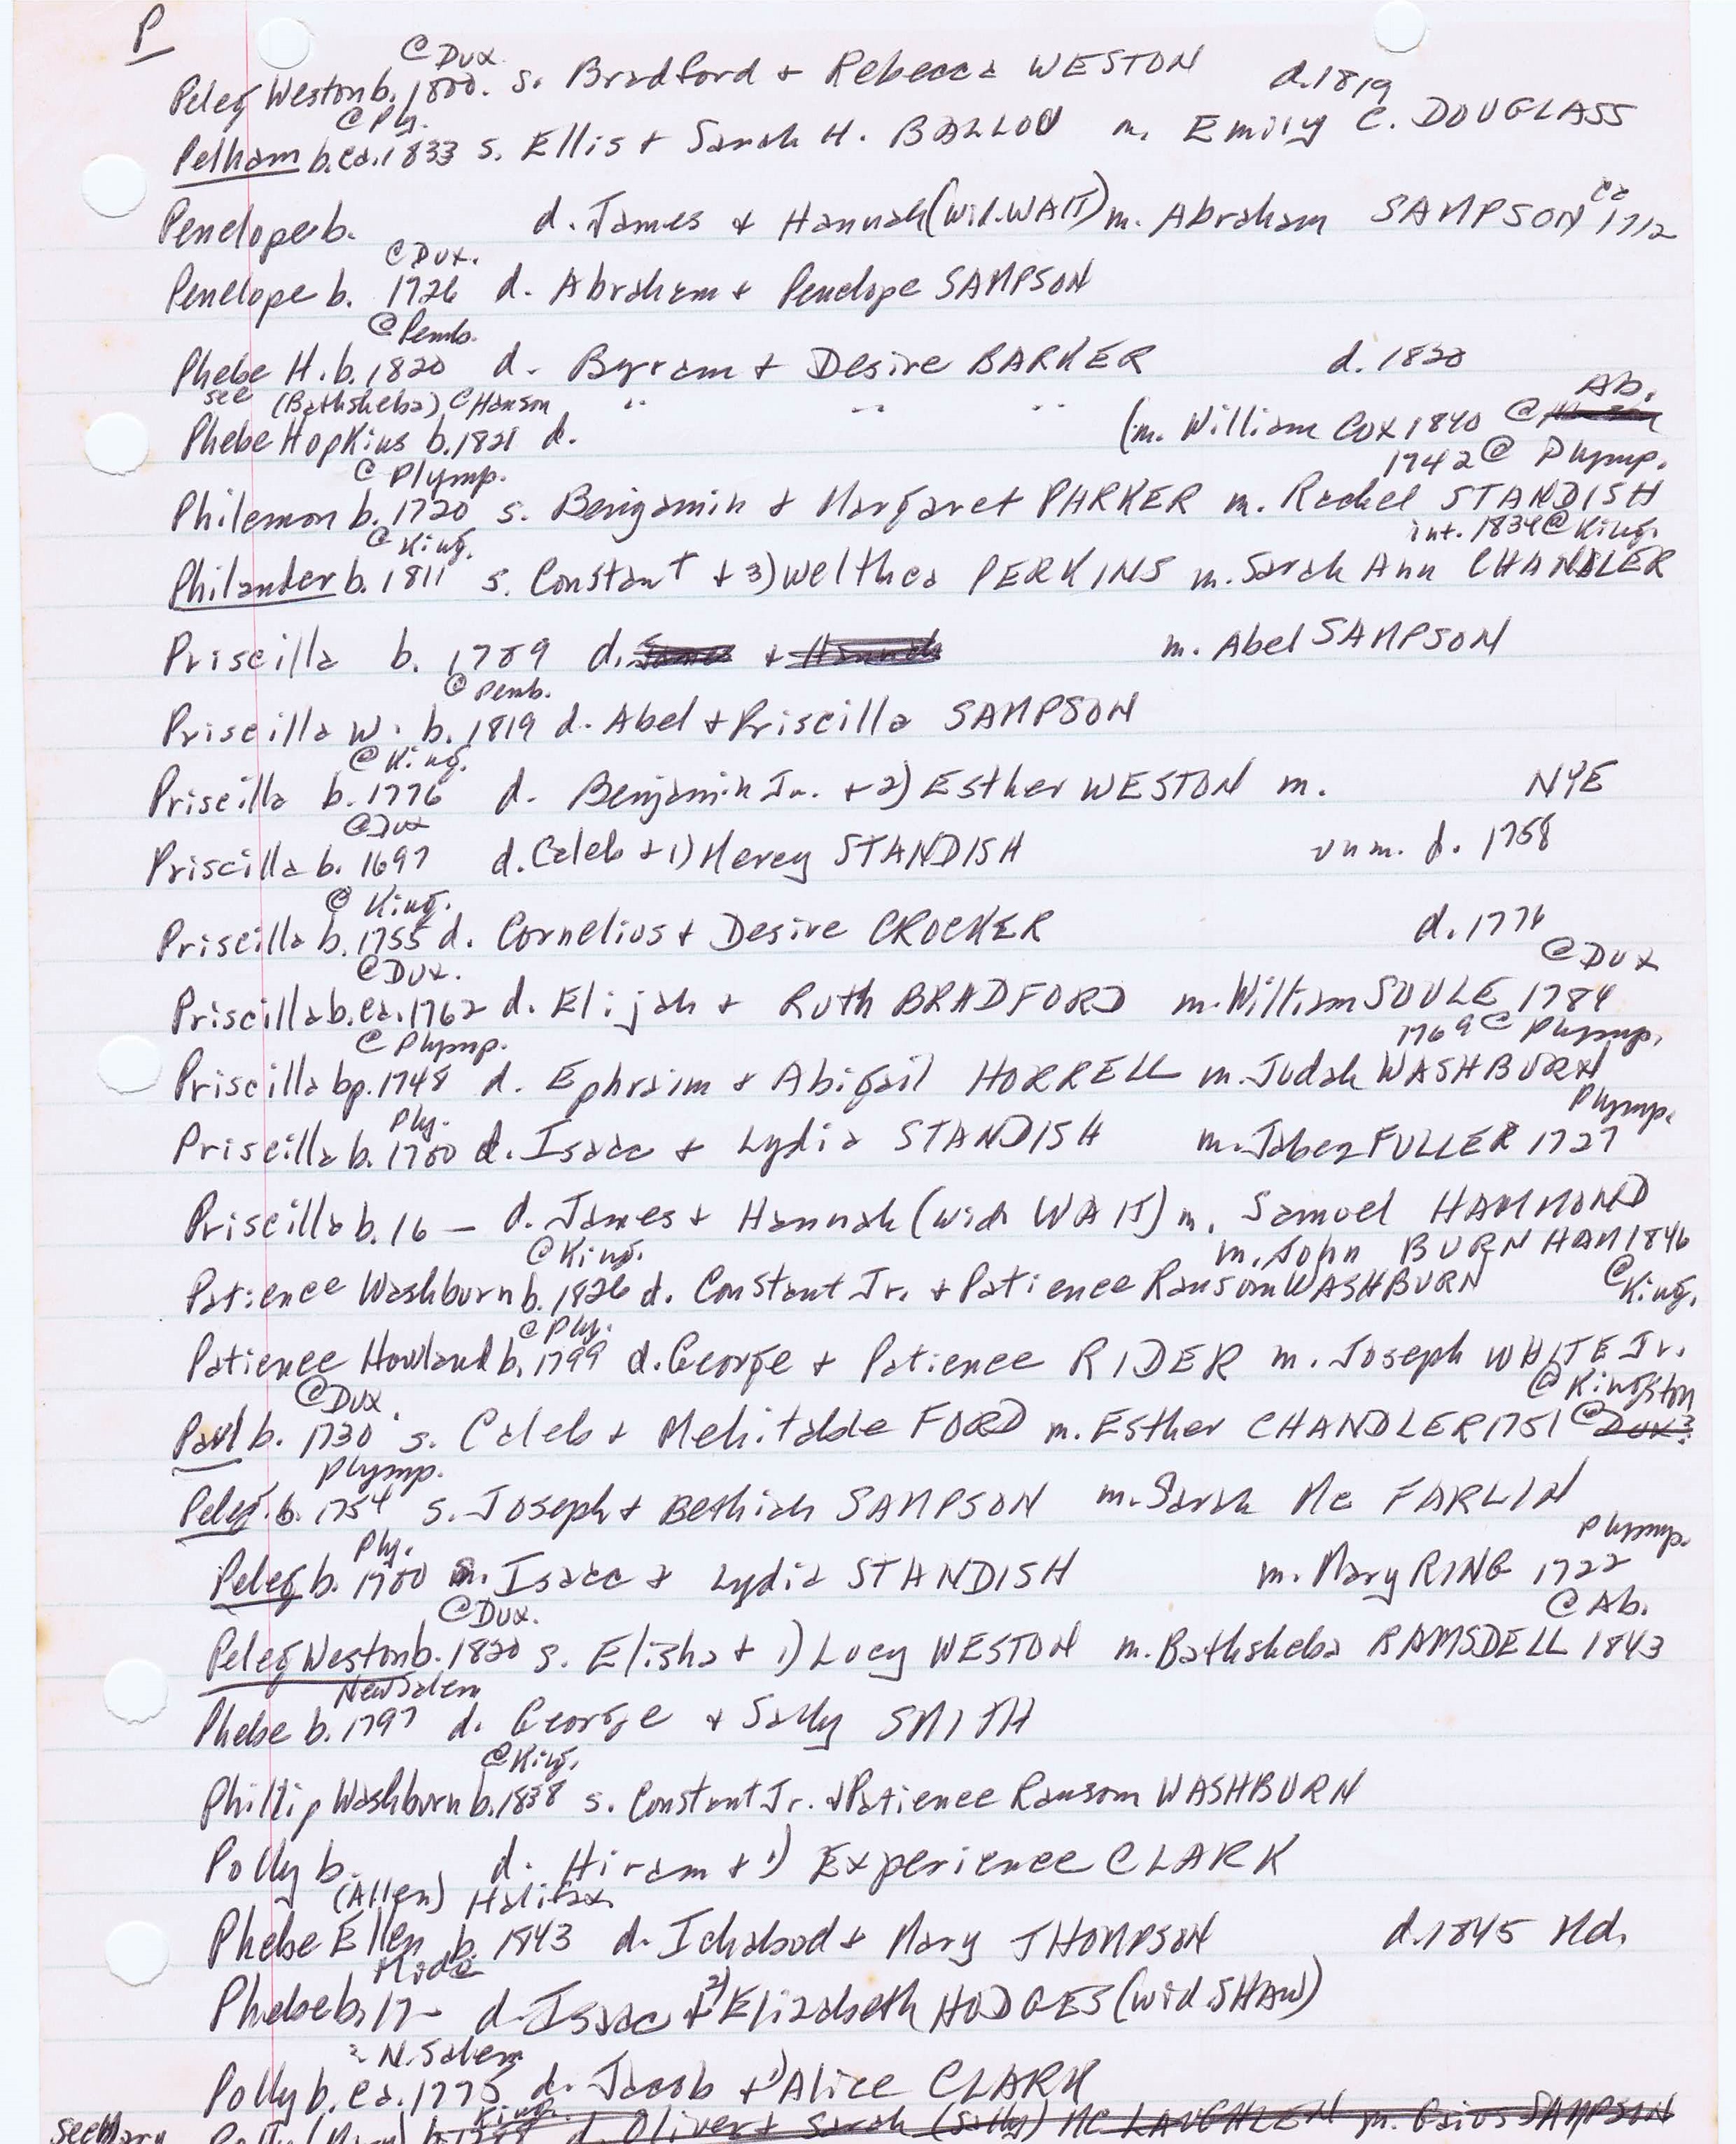 P
@ Dux.
Peleg Weston b. 1800. s. Bradford + Rebecca WESTON d. 1819
@ Ply.
Pelham b. ca. 1833 s. Ellis + Sarah H. BALLOU m. Emily C. DOUGLASS
Penelope b. d. James + Hannah (wid. WAIT) m. Abraham SAMPSON ca 1712
@ Dux.
Penelope b. 1726 d. Abraham + Penelope SAMPSON
@ Pemb.
Phebe H. b. 1820 d. Byram + Desire BARKER d. 1820
see (Bathsheba) @ Hanson " " " Ab.
Phebe Hopkins b. 1821 d. (m. William COX 1840 @
@ Plymp. 1742 @ Plymp.
Philemon b. 1720 s. Benjamin + Margaret PARKER m. Rachel STANDISH
@ King. int. 1834 @ King.
Philander b. 1811 s. Constant + 3) Welthea PERKINS m. Sarah Ann CHANDLER
Priscilla b. 1789 d. James + Hannah m. Abel SAMPSON
@ Pemb.
Priscilla W. b. 1819 d. Abel + Priscilla SAMPSON
@ King.
Priscilla b. 1776 d. Benjamin Jr. + 2) Esther WESTON m. NYE
@ Dux
Priscilla b. 1697 d. Caleb + 1) Mercy STANDISH unm. d. 1758
@ King.
Priscilla b. 1755 d. Cornelius + Desire CROCKER d. 1776
@ Dux. @ Dux
Priscilla b. ca. 1762 d. Elijah + Ruth BRADFORD m. William SOULE 1784
@ Plymp. 1769 @ Plymp.
Priscilla bp. 1748 d. Ephraim + Abigail HORRELL m. Judah WASHBURN
Ply. Plymp.
Priscilla b. 1700 d. Isaac + Lydia STANDISH m. Jabez FULLER 1727
Priscilla b. 16 — d. James + Hannah (wid. WAIT) m. Samuel HAMMOND
@ King. m. John BURNHAM 1846
Patience Washburn b. 1826 d. Constant Jr. + Patience Ransom WASHBURN @ King.
@ Ply.
Patience Howland b. 1799 d. George + Patience RIDER m. Joseph WHITE Jr.
@ Dux. @ Kingston
Paul b. 1730 s. Caleb + Mehitable FORD m. Esther CHANDLER 1751 @ Dux?
Plymp.
Peleg b. 1754 s. Joseph + Bethiah SAMPSON m. Sarah Mc FARLIN
Ply. Plymp.
Peleg b. 1700 s. Isaac + Lydia STANDISH m. Mary RING 1722
@ Dux. @ Ab.
Peleg Weston b. 1820 s. Elisha + 1) Lucy WESTON m. Bathsheba RAMSDELL 1843
New Salem
Phebe b. 1797 d. George + Sally SMITH
@ King.
Phillip Washburn b. 1838 s. Constant Jr. + Patience Ransom WASHBURN
Polly b. d. Hiram + 1) Experience CLARK
(Allen) Halifax
Phebe Ellen b. 1843 d. Ichabod + Mary THOMPSON d. 1845 Md.
Midd
Phebe b. 17- d. Isaac + 2) Elizabeth HODGES (wid. SHAW)
? N. Salem
Polly b. ca. 1775 d. Jacob + 1) Alice CLARK
King.
see Mary Polly (Mary) b. d. Oliver + Sarah (Sally) Mc LAUGHLEN m. Gaius SAMPSON